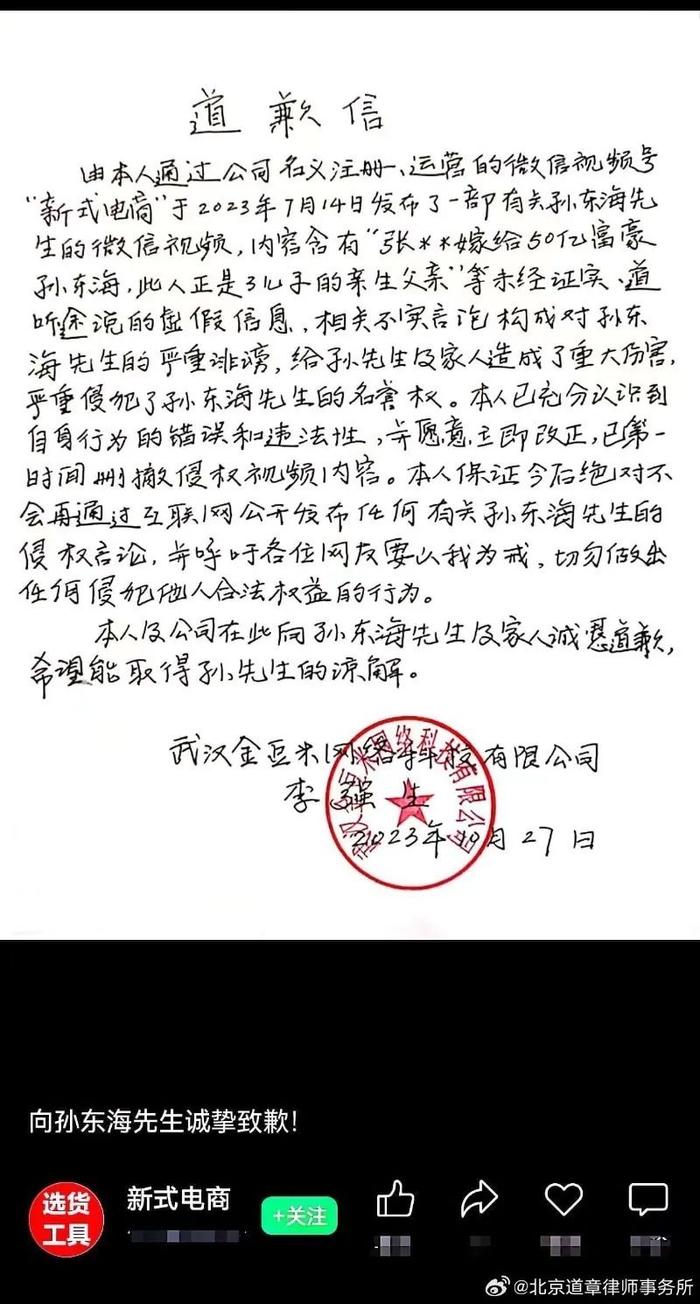 道歉信
由本人通过公司名义注册、运营的微信视频号
“新式电商”于2023年7月14日发布了一部有关孙东海先
生的微信视频，内容含有“张**嫁给50亿富豪
孙东海，此人正是3儿子的亲生父亲”等未经证实、道
听途说的虚假信息，相关不实言论构成对孙东
海先生的严重诽谤，给孙先生及家人造成了重大伤害，
严重侵犯了孙东海先生的名誉权。本人已充分认识到
自身行为的错误和违法性，并愿意立即改正，已第一
时间删撤侵权视频内容。本人保证今后绝对不
会再通过互联网公开发布任何有关孙东海先生的
侵权言论，并呼吁各位网友要以我为戒，切勿做出
任何侵犯他人合法权益的行为。
本人及公司在此向孙东海先生及家人诚恳道歉，
希望能取得孙先生的谅解。
武汉金豆米网络科技有限公司
李强生
2023年10月27日
武汉金豆米网络科技有限公司
向孙东海先生诚挚致歉!
选货
工具
新式电商
+关注
@北京道章律师事务所